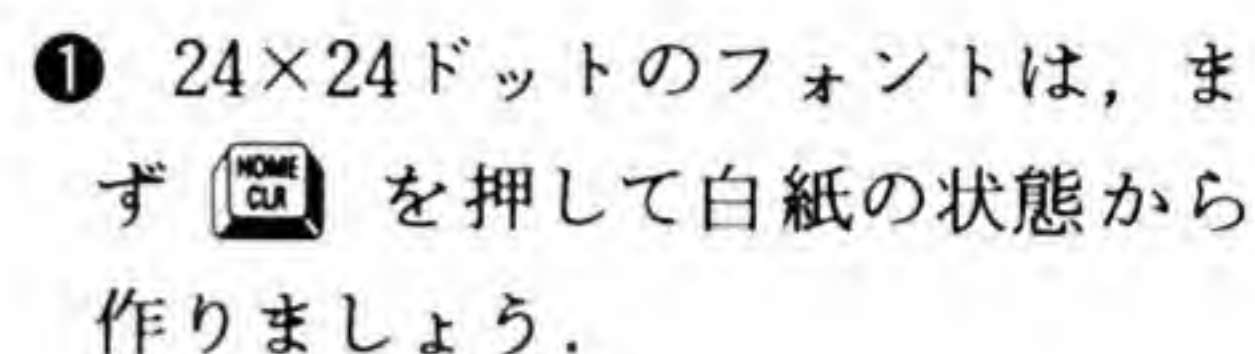 ❶ 24×24ドットのフォントは，ま
ず HOME CLR を押して白紙の状態から
作りましょう．